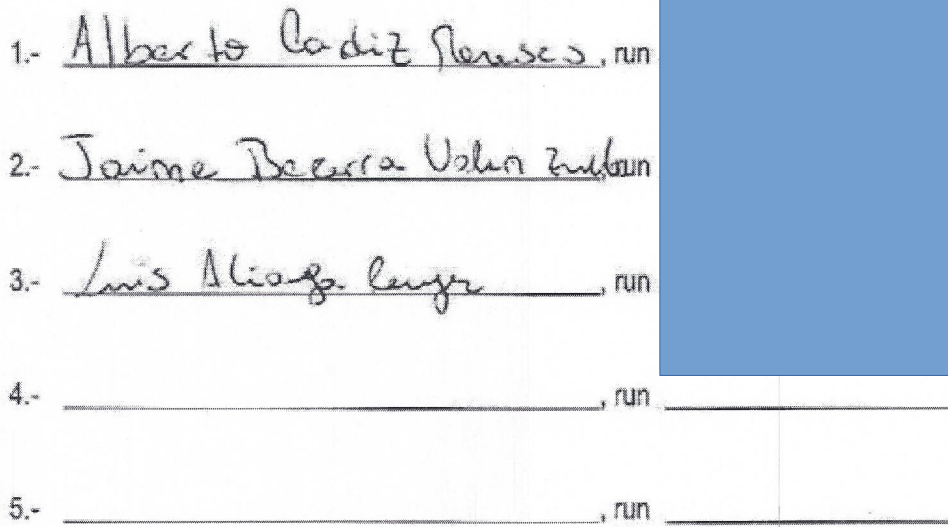 1.- Alberto Cadiz Meneses, run
2.- Jaime Becerra run
3.- Luis Aliaga, run
4.- , run
5.- , run